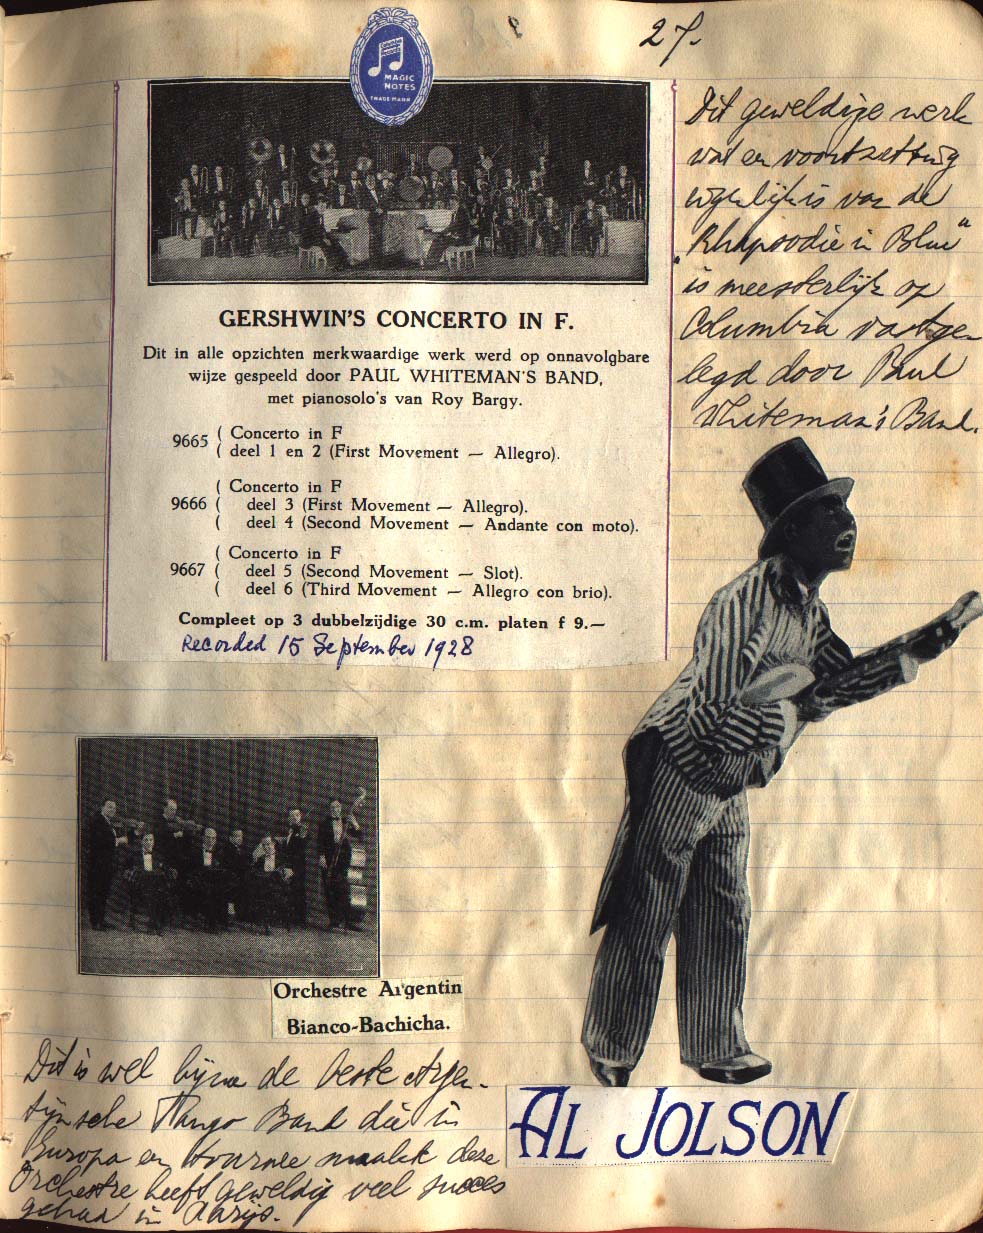 27.
Columbia
Records
MAGIC
NOTES
TRADE MARK
GERSHWIN'S CONCERTO IN F.
Dit in alle opzichten merkwaardige werk werd op onnavolgbare
wijze gespeeld door PAUL WHITEMAN'S BAND,
met pianosolo's van Roy Bargy.
9665 ( Concerto in F
( deel 1 en 2 (First Movement — Allegro).
( Concerto in F
9666 ( deel 3 (First Movement — Allegro).
( deel 4 (Second Movement — Andante con moto).
( Concerto in F
9667 ( deel 5 (Second Movement — Slot).
( deel 6 (Third Movement — Allegro con brio).
Compleet op 3 dubbelzijdige 30 c.m. platen f 9.—
Recorded 15 September 1928
Dit geweldige werk
wat en voortzetting
eigenlijk is van de
„Rhapsodie in Blue"
is meesterlijk op
Columbia vastge-
legd door Paul
Whiteman's Band.
Orchestre Argentin
Bianco-Bachicha.
Dit is wel bijna de beste Argen-
tijnsche Tango Band die in
Europa en tournee maakt deze
Orchestre heeft geweldig veel succes
gehad in Parijs.
AL JOLSON